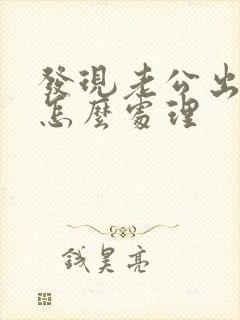 發現老公出
怎麼處理
錢昊亮